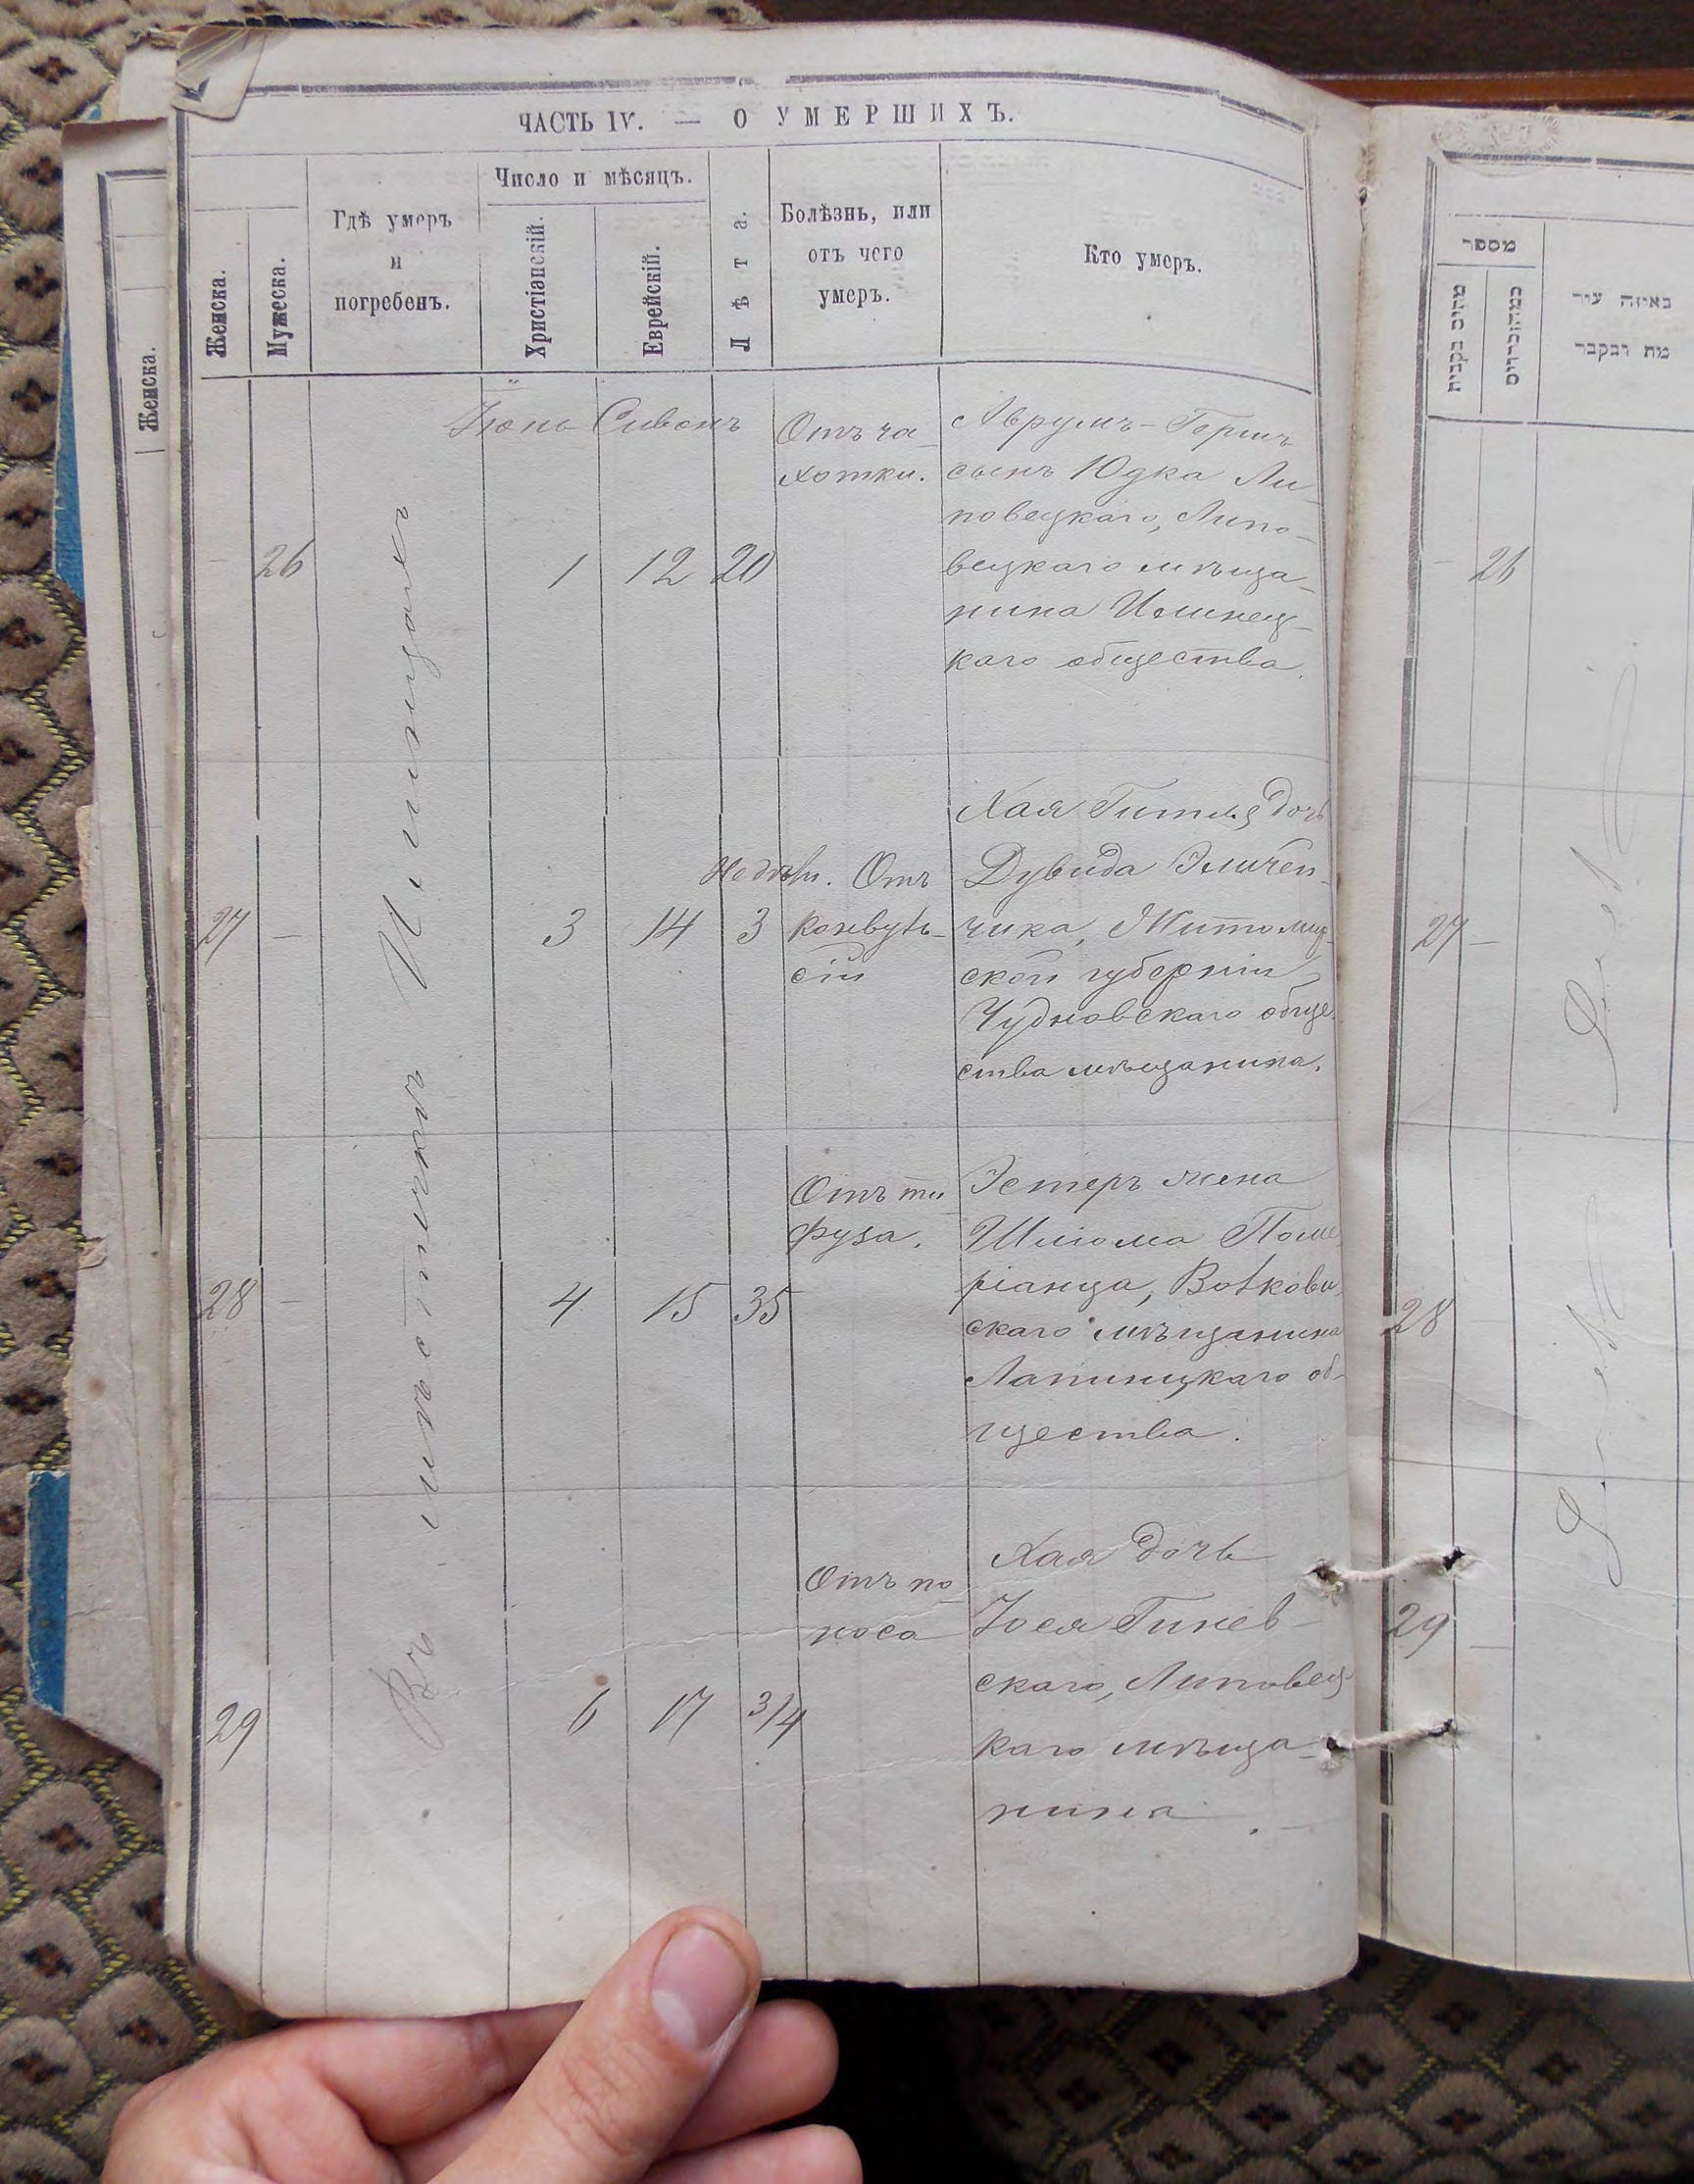 ЧАСТЬ IV. — О УМЕРШИХЪ.
Женска.
Мужеска.
Гдѣ умеръ
и
погребенъ.
Число и мѣсяцъ.
Христіанскій.
Еврейскій.
Лѣта.
Болѣзнь, или
отъ чего
умеръ.
Кто умеръ.
Въ мѣстечкѣ Илинцахъ
Іюнь Сивонъ
- 26 1 12 20
Отъ ча-
хотки.
Аврумъ-Гершъ
сынъ Юдка Ли-
повецкаго, Липо-
вецкаго мѣща-
нина Илинец-
каго общества.
27 - 3 14 3
Недѣли. Отъ
конвуль-
сій
Хая Гитля дочь
Дувида Эличен-
чика, Житомир-
ской губерніи
Чудновскаго обще-
ства мѣщанина.
28 - 4 15 35
Отъ ти
фуза.
Эстеръ жена
Шліома Поме
ріанца, Волкови
скаго мѣщанина
Лапиницкаго об-
щества.
29 6 17 3/4
Отъ по-
носа
Хая дочь
Іося Гинев-
скаго, Липовец-
каго мѣща-
нина.-
Женска.
מספר
באיזה עיר
מת ונקבר
- 26
27 -
28
29 -